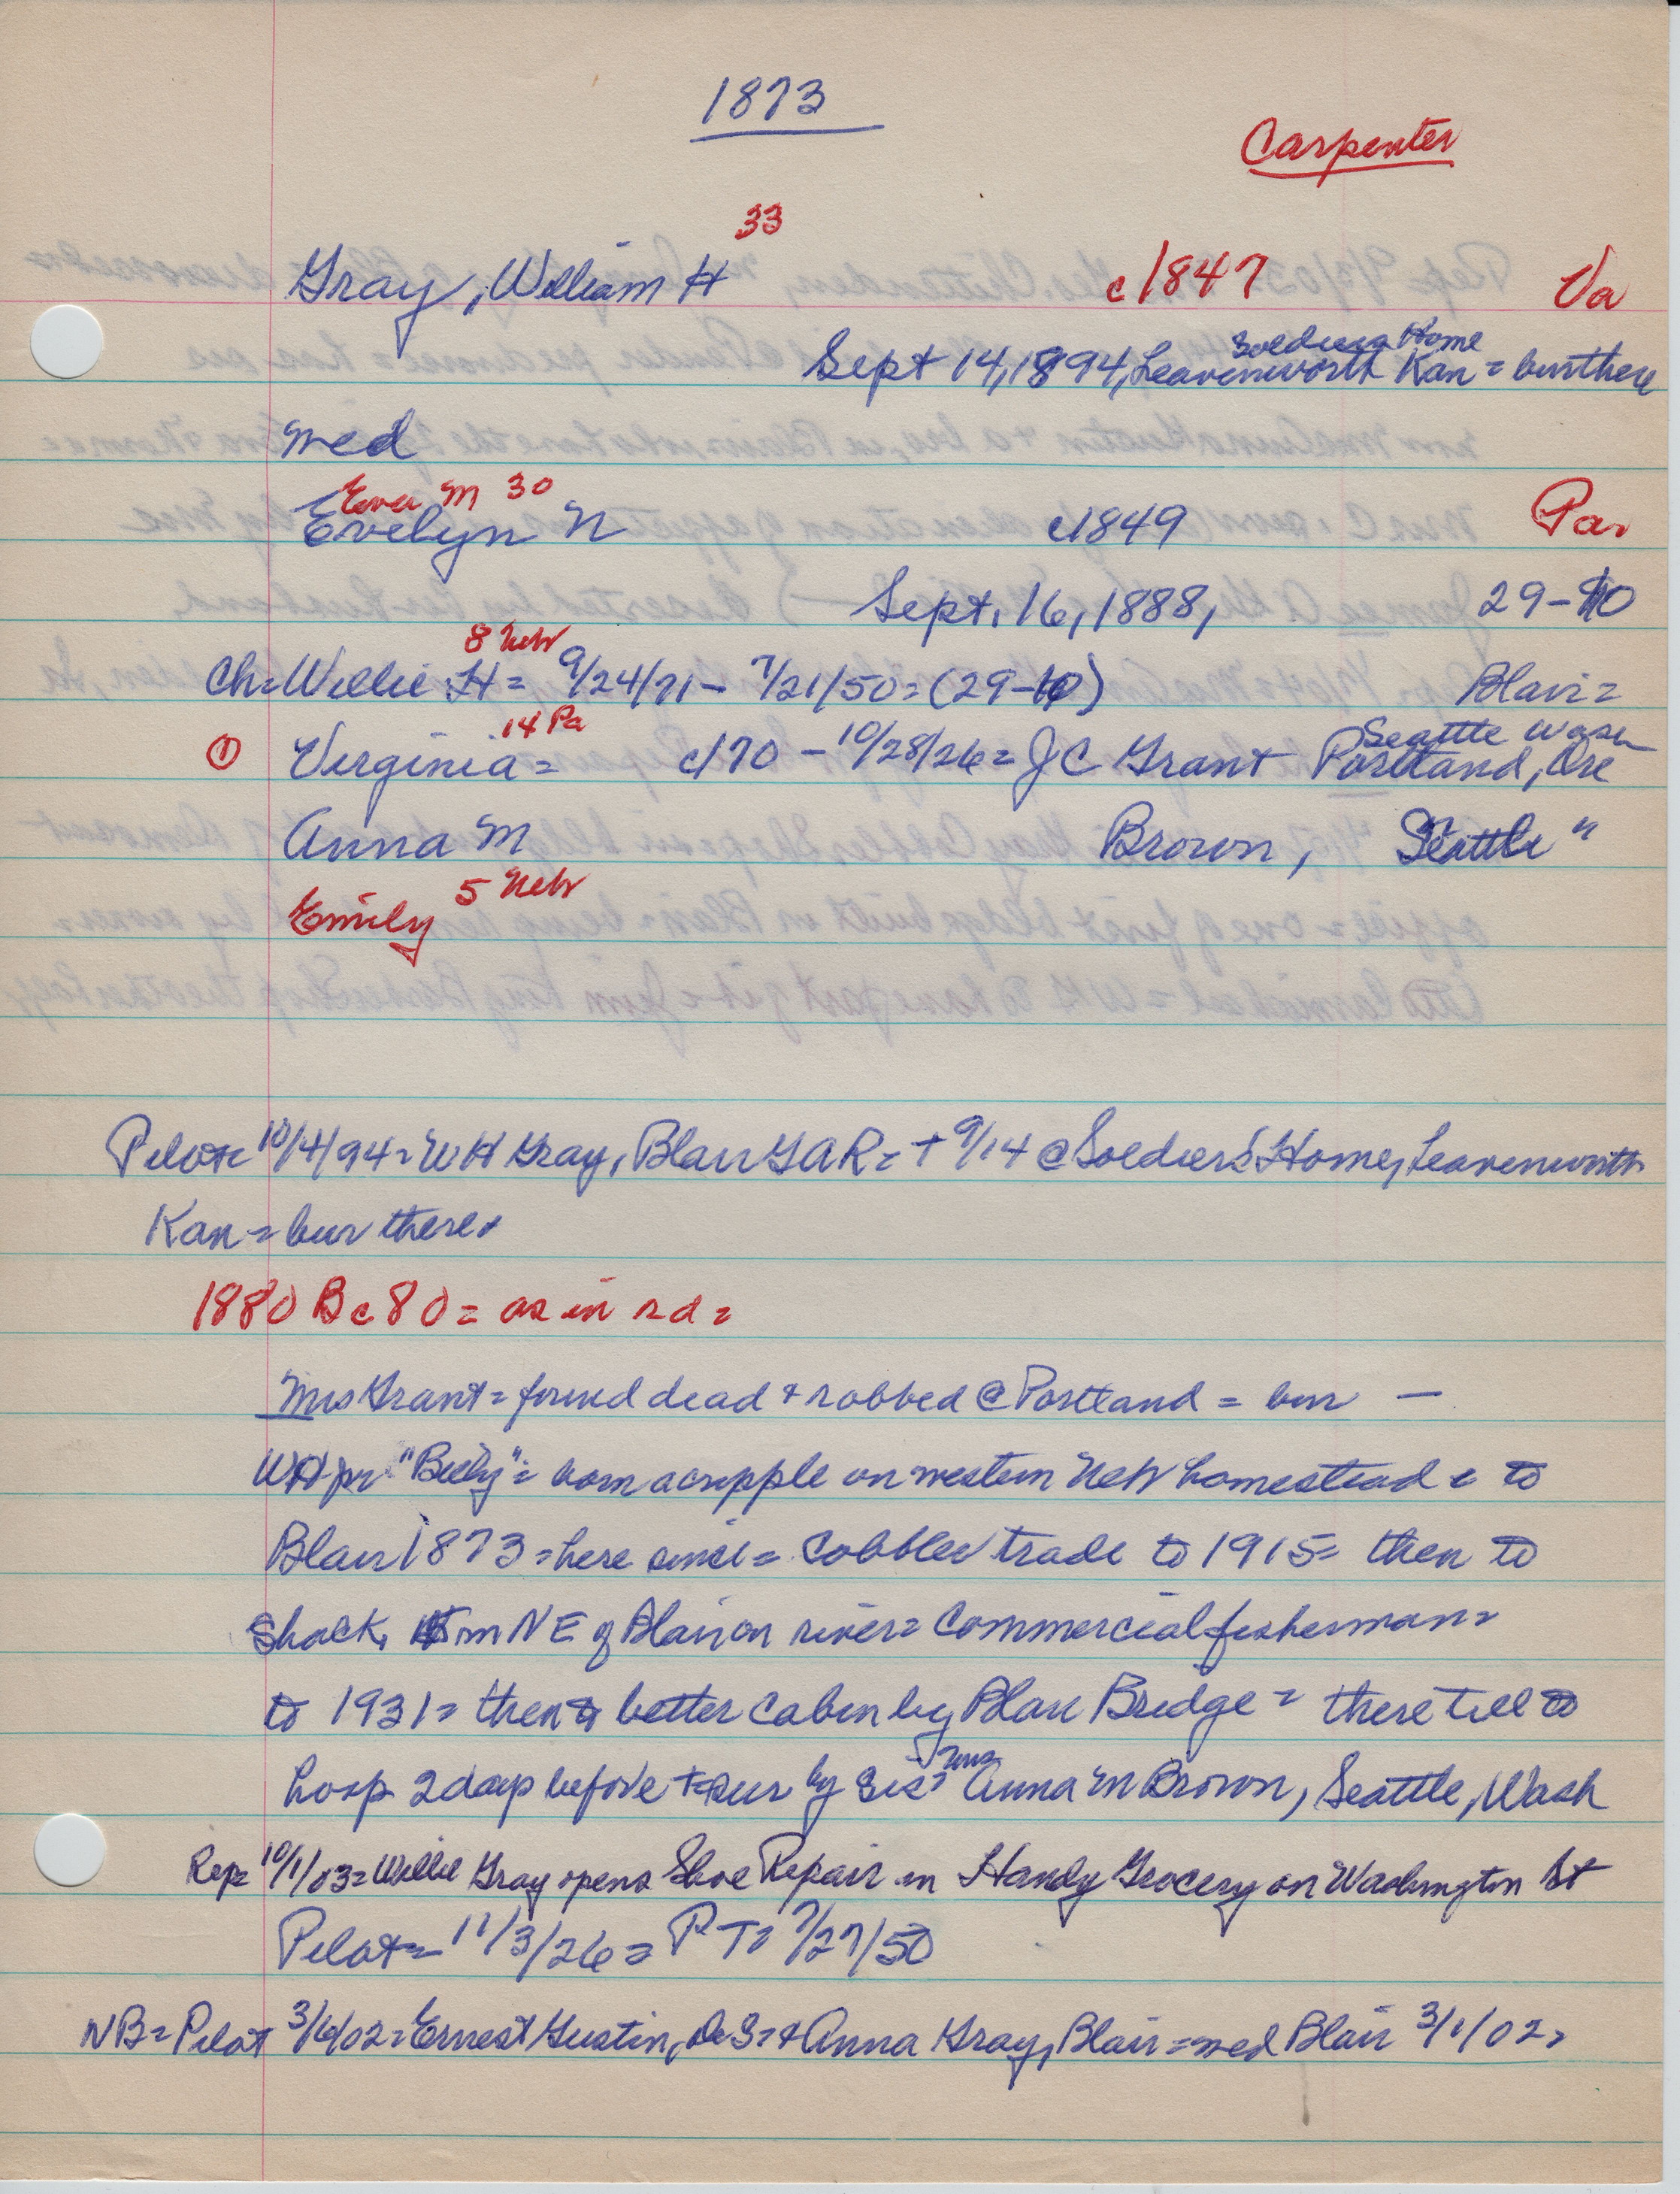 1873
Carpenter
33
Gray, William H c1847 Va
Soldiers Home
Sept 14, 1894, Leavenworth Kan = bur there
med
Eva M 30
Evelyn N c1849 Pa
Sept. 16, 1888, 29-10
8 Nebr
Ch= Willie H = 9/24/71 - 7/21/50 = (29-10) Blair =
14 Pa
Seattle Wash
① Virginia = c/70 - 10/28/26 = JC Grant Portland, Ore
Anna M Brown, Seattle "
5 Nebr
Emily
Pilot = 10/4/94 = W H Gray, Blair GAR = + 9/14 @ Soldiers' Home, Leavenworth
Kan = bur there
1880 B c 80 = as in rd =
Mrs Grant = found dead & robbed @ Portland = bur —
WH jr "Billy" = born a cripple on western Neb homestead & to
Blair 1873 = here since = cobbler trade to 1915 = then to
shack, m NE of Blair on river = Commercial fisherman =
to 1931 = then to better cabin by Blair Bridge = there till to
Mrs
hosp 2 days before + = sur by sis = Anna M Brown, Seattle, Wash
Rep = 10/1/03 = Willie Gray opens Shoe Repair in Handy Grocery on Washington St
Pilot = 11/3/26 = P T = 7/27/50
NB = Pilot 3/6/02 = Ernest Gustin, De S = & Anna Gray, Blair = med Blair 3/1/02 =